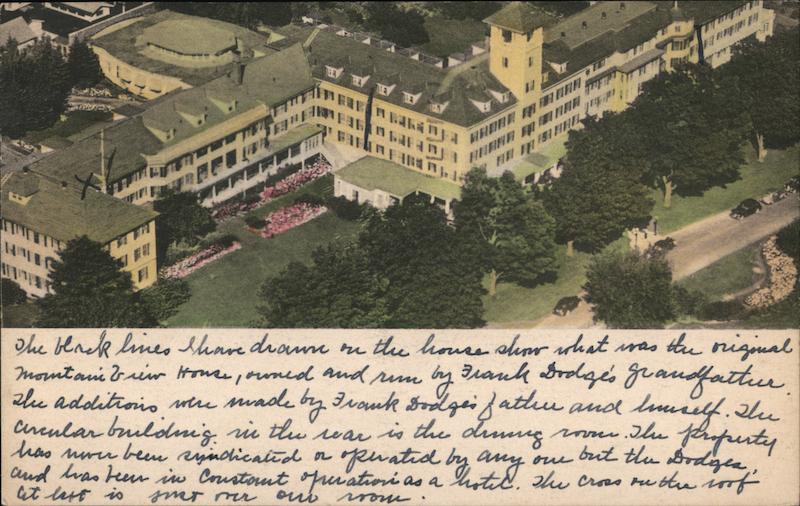 The black lines I have drawn on the house show what was the original
Mountain View House, owned and run by Frank Dodge's grandfather.
The additions were made by Frank Dodge's father and himself. The
circular building in the rear is the dining room. The property
has never been syndicated or operated by any one but the Dodges,
and has been in constant operation as a hotel. The cross on the roof
at left is just over our room.